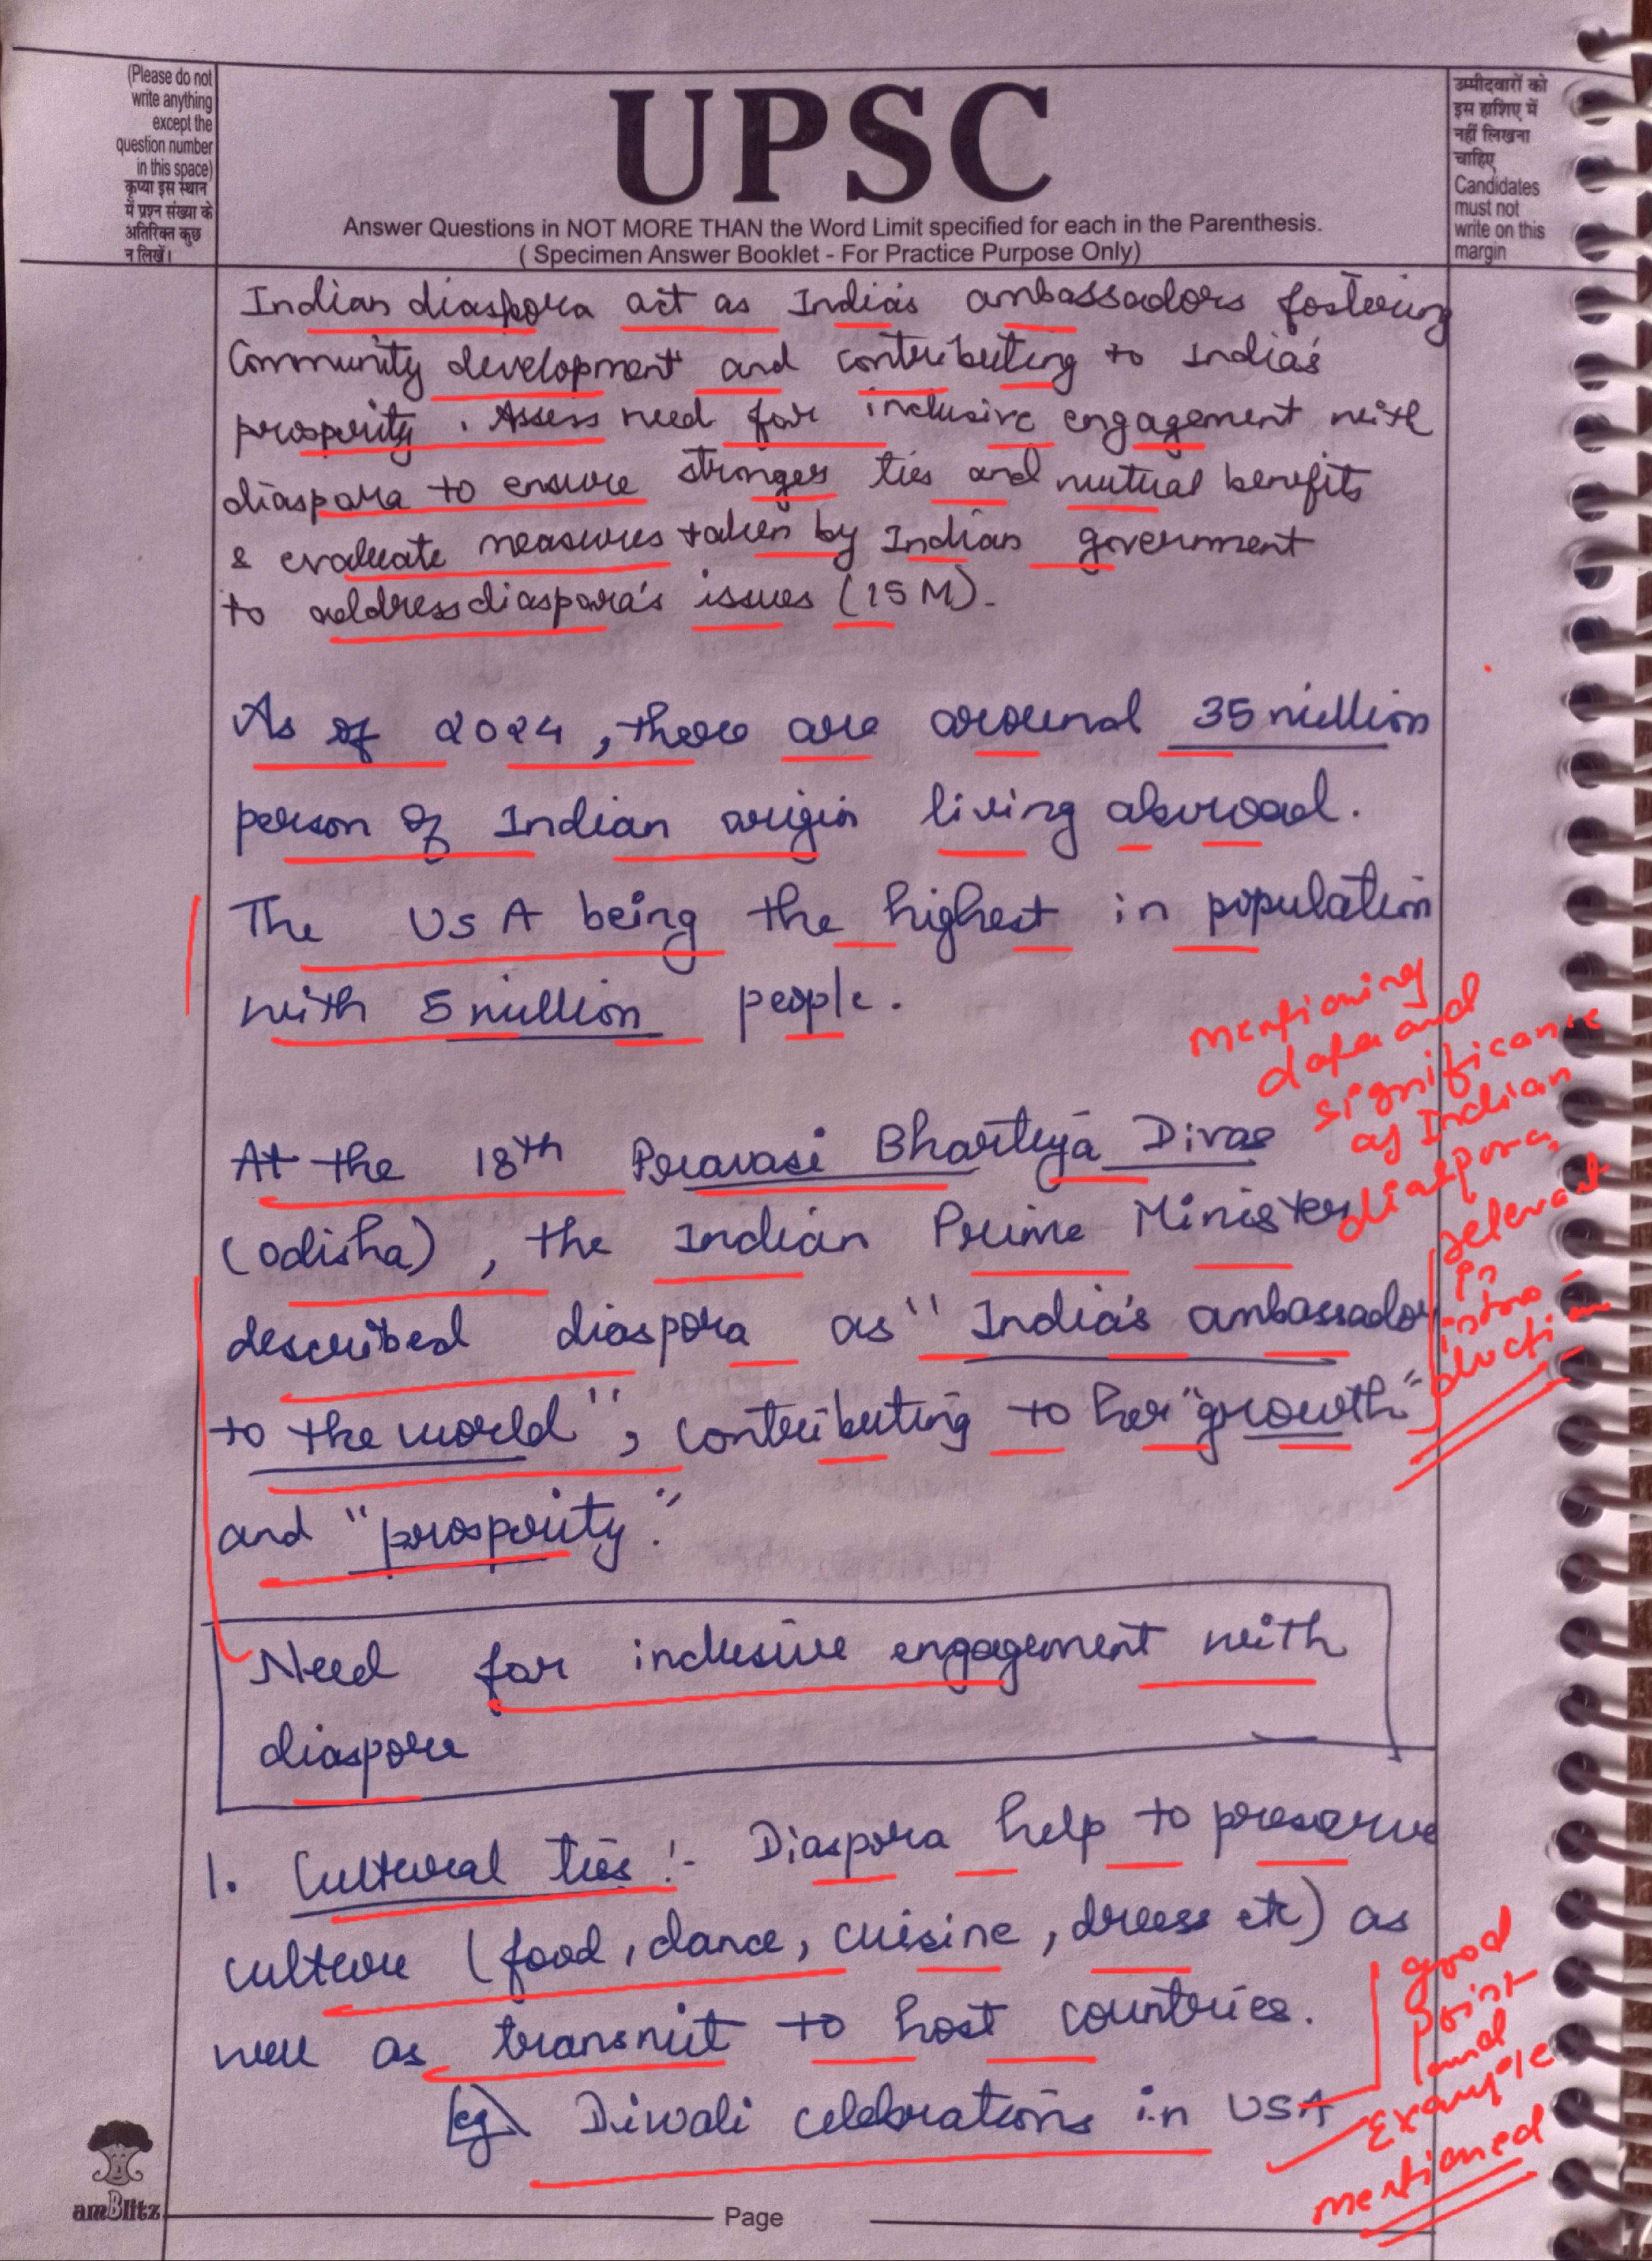 (Please do not
write anything
except the
question number
in this space)
कृप्या इस स्थान
में प्रश्न संख्या के
अतिरिक्त कुछ
न लिखें।
UPSC
Answer Questions in NOT MORE THAN the Word Limit specified for each in the Parenthesis.
( Specimen Answer Booklet - For Practice Purpose Only)
उम्मीदवारों को
इस हाशिए में
नहीं लिखना
चाहिए
Candidates
must not
write on this
margin
Indian diaspora act as India's ambassadors fostering
Community development and contributing to India's
prosperity. Assess need for inclusive engagement with
diaspora to ensure stronger ties and mutual benefits
& evaluate measures taken by Indian government
to address diaspora's issues (15 M).
As of 2024, there are around 35 million
person of Indian origin living abroad.
The USA being the highest in population
with 5 million people.
At the 18th Pravasi Bhartiya Divas
(Odisha), the Indian Prime Minister
described diaspora as "India's ambassador
to the world", contributing to her "growth"
and "prosperity."
mentioning
data and
significance
of Indian
diaspora,
relevant
in
intro-
duction
Need for inclusive engagement with
diaspora
1. Cultural ties :- Diaspora help to preserve
culture (food, dance, cuisine, dress etc) as
well as transmit to host countries.
eg Diwali celebrations in USA
good
point
and
example
mentioned
amBlitz
Page